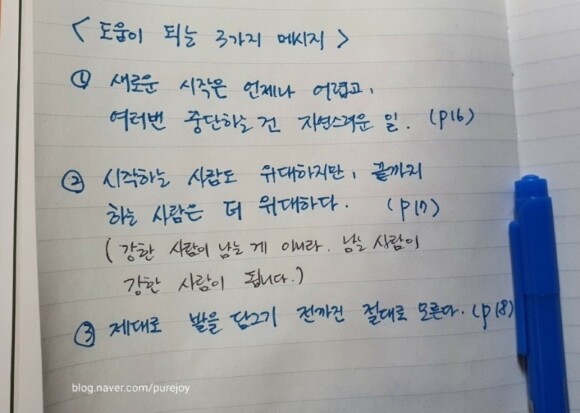 < 도움이 되는 3가지 메시지 >
① 새로운 시작은 언제나 어렵고,
여러번 중단하는 건 자연스러운 일. (p16)
② 시작하는 사람도 위대하지만, 끝까지
하는 사람은 더 위대하다. (p17)
( 강한 사람이 남는 게 아니라. 남는 사람이
강한 사람이 됩니다.)
③ 제대로 발을 담그기 전까진 절대로 모른다. (p18)
blog.naver.com/purejoy